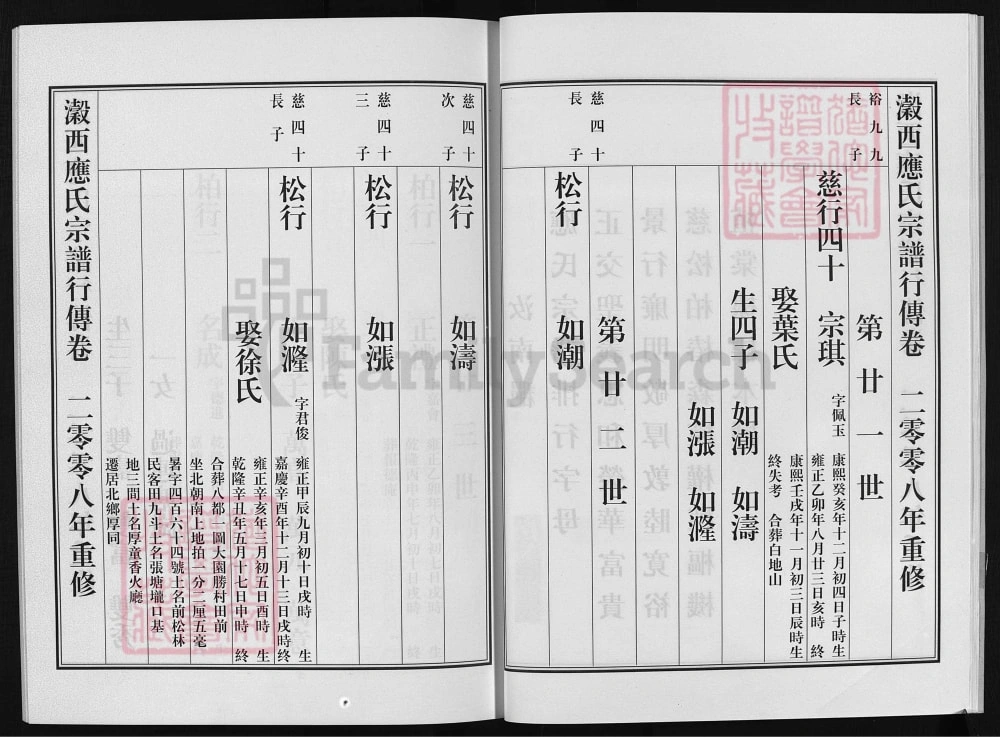 瀫西應氏宗譜行傳卷 二零零八年重修
第廿一世
裕九九
長子
慈行四十 宗琪 字佩玉 康熙癸亥年十二月初四日子時生
雍正乙卯年八月廿三日亥時 終
娶葉氏 康熙壬戌年十一月初三日辰時生
終失考 合葬白地山
生四子 如潮 如濤
如漲 如漋
第廿二世
慈四十
長子
松行 如潮
慈四十
次子
松行 如濤
慈四十
三子
松行 如漲
慈四十
長子
松行 如漋 字君俊 雍正甲辰九月初十日戌時 生
嘉慶辛酉年十二月十三日戌時終
娶徐氏 雍正辛亥年三月初五日酉時 生
乾隆辛丑年五月十七日申時 終
合葬八都一圖大園勝村田前
坐北朝南上地拍一分二厘五毫
暑字四百六十四號土名前松林
民客田九斗土名張塘壠口基
地三間土名厚童香火廳
遷居北鄉厚同
瀫西應氏宗譜行傳卷 二零零八年重修
FamilySearch